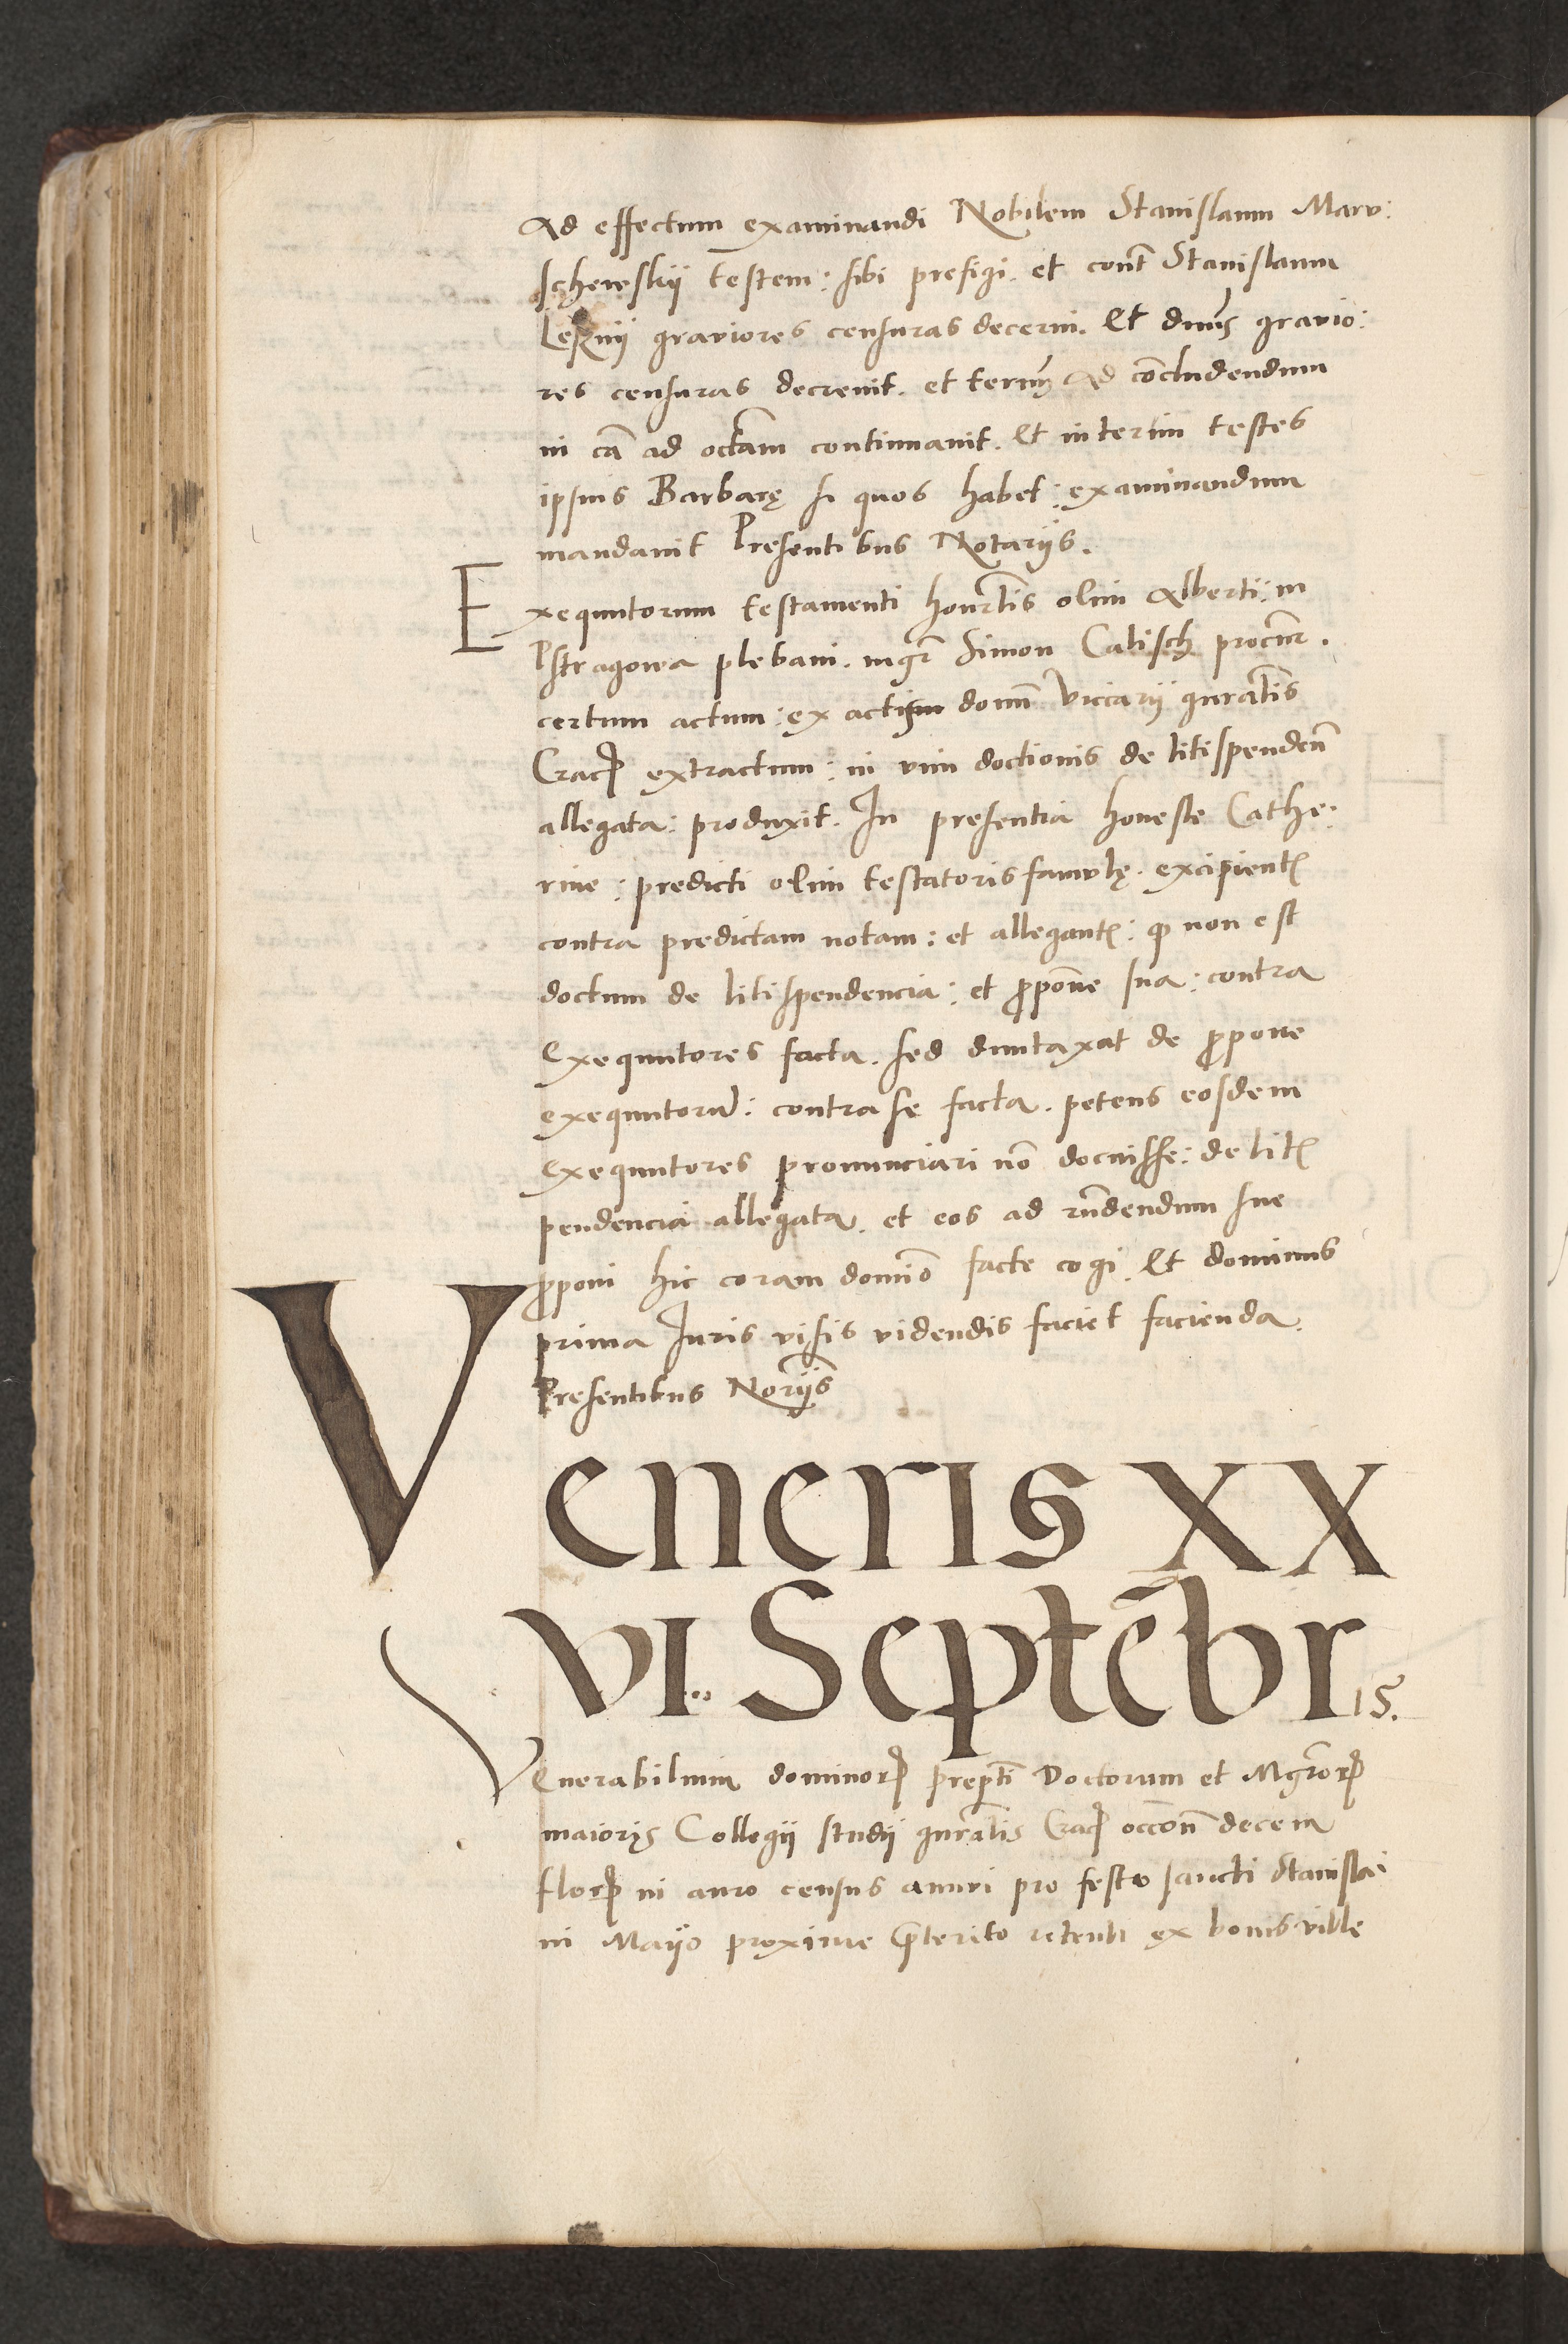 Ad effectum examinandi Nobilem Stanislaum Marv:
schewskij testem: sibi prefigi. et cont̃ Stanislaum
graviores censuras decerni. Et dnus gravio:
res censuras decrevit. et termũ ad cõcludendum
in cã ad octãm continuavit. Et interim testes
ipsius Barbarę si quos habet: examinandum
mandavit Presentibus Notarijs.
Exequutorum testamenti honrãtis olim Alberti: in
Pstragowa plebani. mgr̃ Simon Calisch procur̃.
certum actum: ex actis domĩ vicarij gnrãlis
Crac extractum: in vim doctionis de litispendeñ
allegata: produxit. In presentia honeste Cathe:
rine: predicti olim testatoris famulę. excipient
contra predictam notam: et allegant: q non est
doctum de litispendencia: et ꝓpoñe sua: contra
exequutores facta. sed duntaxat de ꝓpone
exequutorũ: contra se facta. petens eosdem
exequutores pronunciari nõ docuisse: de lit
pendencia allegata. et eos ad rñdendum sue
ꝓponi hic coram domĩo facte cogi. Et dominus
prima Iuris visis videndis faciet facienda.
Presentibus Norijs
Veneris XX
VI. Septẽbr
is.
Venerabilium dominorꝝ prepti Doctorum et Mgrorꝝ
maioris Collegij studij gnrãlis Crac occoñ decem
florꝝ in auro census annui pro festo sancti Stanislai
in Maijo proxime p̃terito retenti ex bonis ville